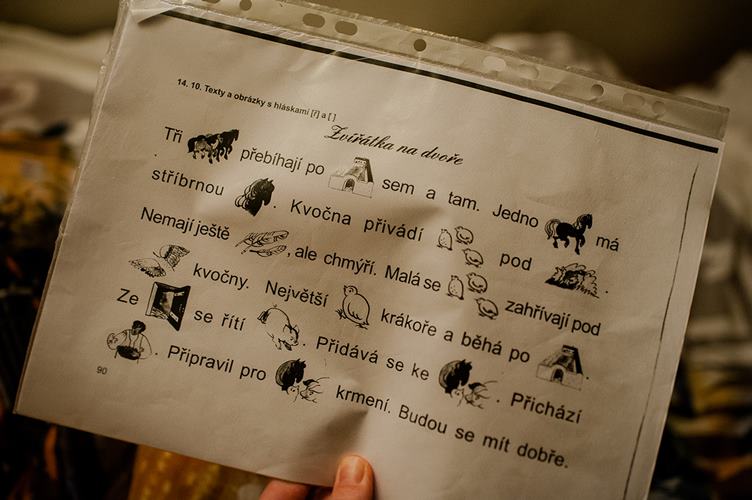 14. 10. Texty a obrázky s hláskami [ř] a [ ]
Zvířátka na dvoře
Tři přebíhají po sem a tam. Jedno má
stříbrnou . Kvočna přivádí pod .
Nemají ještě , ale chmýří. Malá se zahřívají pod
kvočny. Největší krákoře a běhá po .
Ze se řítí . Přidává se ke . Přichází
. Připravil pro krmení. Budou se mít dobře.
90